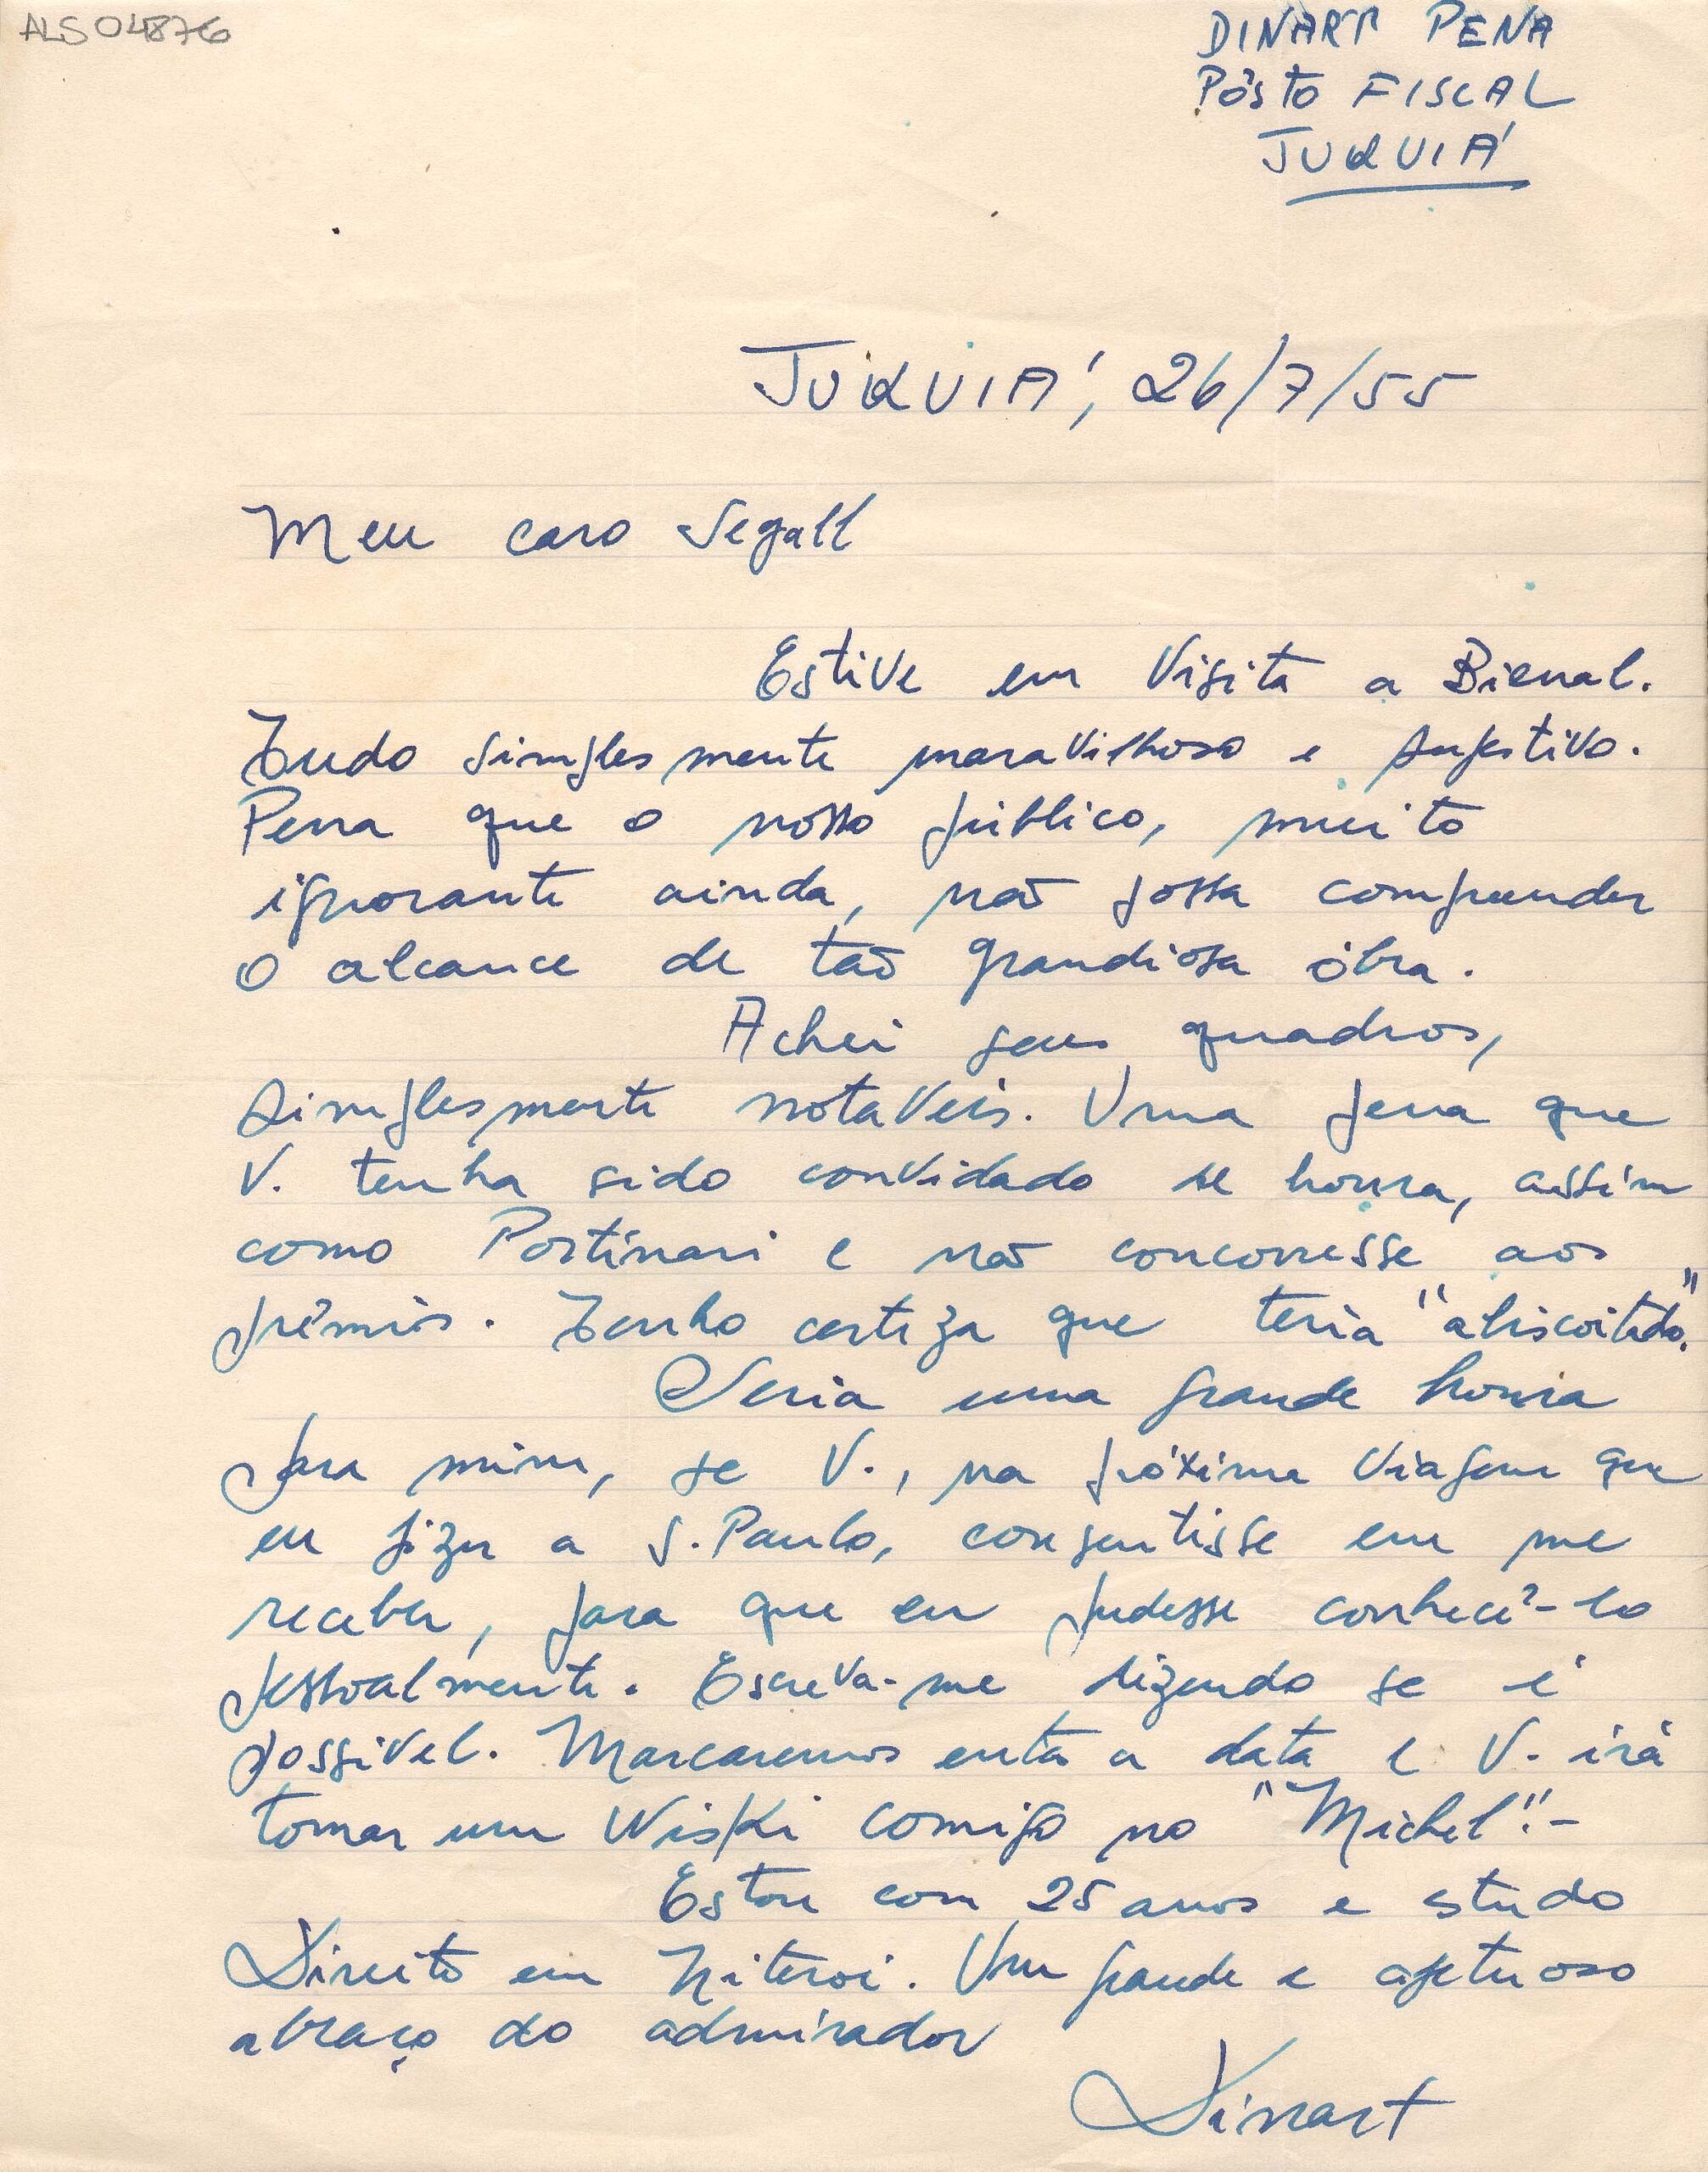 ALS 04876
DINART PENA
PÔSTO FISCAL
JUQUIÁ
JUQUIÁ, 26/7/55
Meu caro Segall
Estive em visita a Bienal.
Tudo simplesmente maravilhoso e sugestivo.
Pena que o nosso público, muito
ignorante ainda, não possa compreender
o alcance de tão grandiosa óbra.
Achei seus quadros,
simplesmente notaveis. Uma pena que
V. tenha sido convidado de honra, assim
como Portinari e não concorresse aos
prêmios. Tenho certeza que teria "abiscoitado."
Seria uma grande honra
para mim, se V., na próxima viagem que
eu fizer a S. Paulo, consentisse em me
receber, para que eu pudesse conhecê-lo
pessoalmente. Escreva-me dizendo se é
possivel. Marcaremos então a data e V. irá
tomar um Wiski comigo no "Michel".-
Estou com 25 anos e studo
Direito em Niteroi. Um grande e afetuoso
abraço do admirador
Dinart